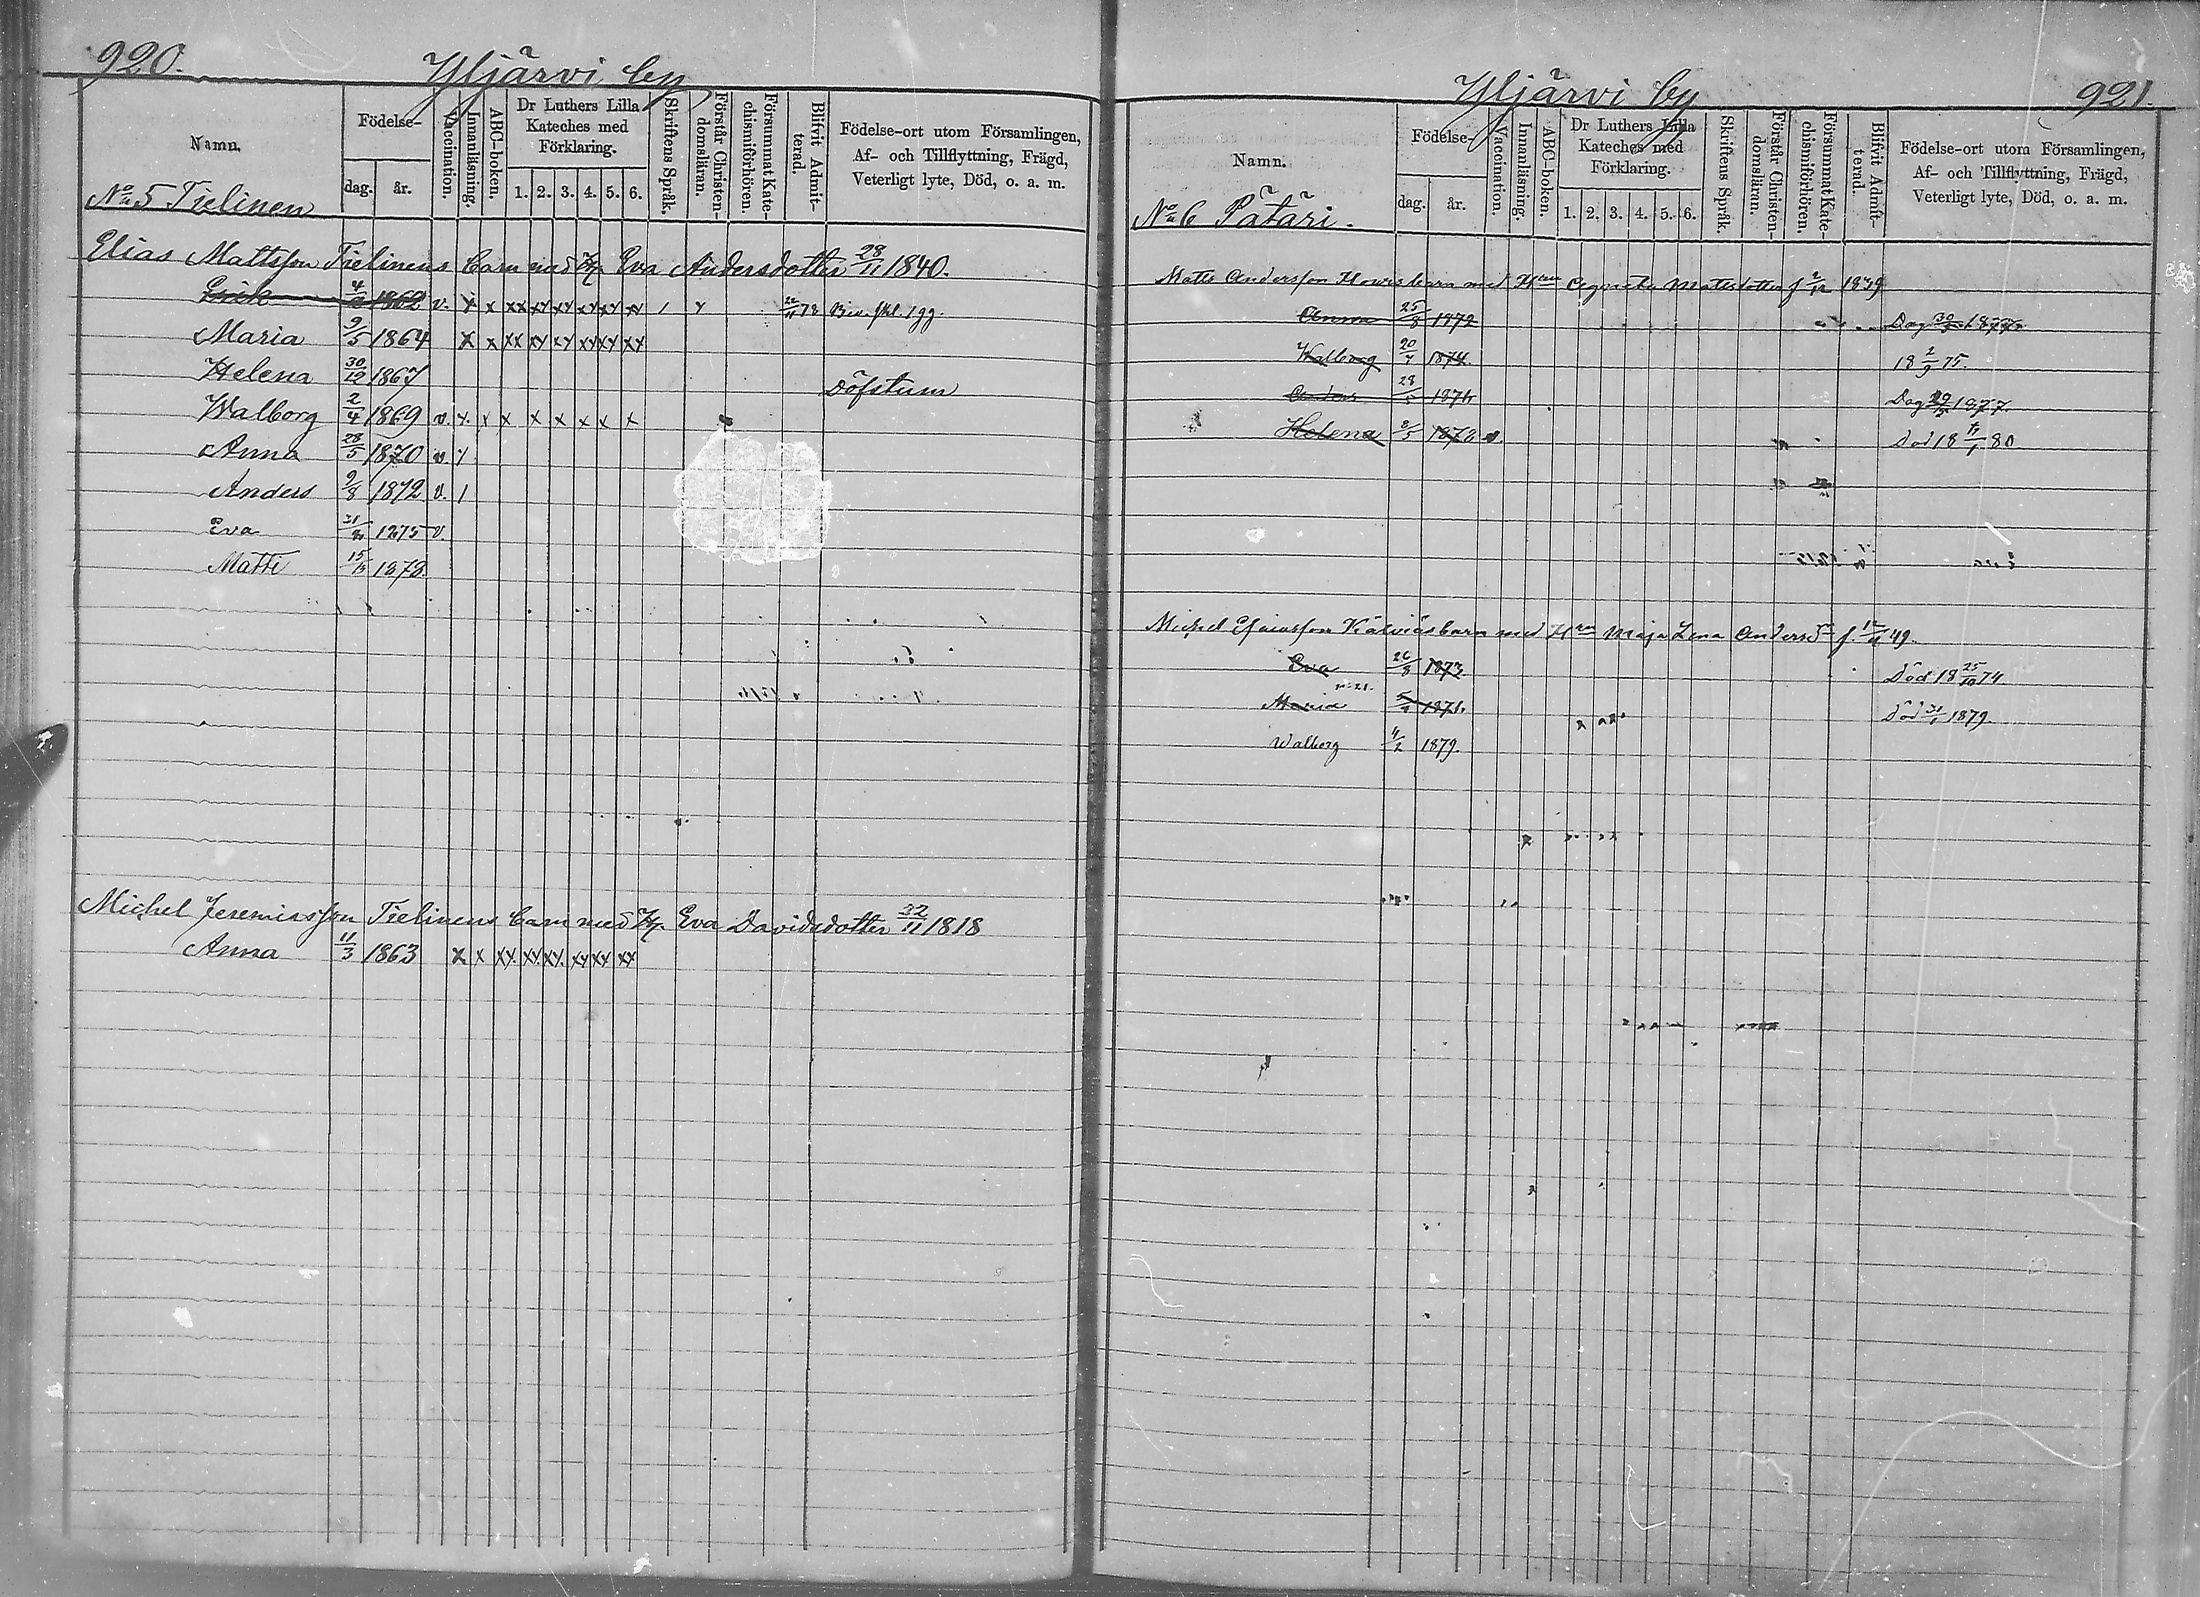 920.
Yljärvi by
Namn.
Födelse-
dag. år.
Vaccination.
Innanläsning.
ABC-boken.
Dr Luthers Lilla Kateches med Förklaring.
1. 2. 3. 4. 5. 6.
Skriftens Språk.
Förstår Christendomsläran.
Försummat Katechismiförhören.
Blifvit Admitterad.
Födelse-ort utom Församlingen, Af- och Tillflyttning, Frägd, Veterligt lyte, Död, o. a. m.
No 5 Tielinen
Elias Mattsson Tielinens barn med H. Eva Andersdotter 28/11 1840.
Erick 1862 v. x x xx xx xx xx xx xx
Maria 9/5 1864 x x xx xx xx xx xx xx
Helena 30/12 1867 Döfstum
Walborg 2/4 1869 v. x. x x x x x x x
Anna 28/5 1870 v.
Anders 9/8 1872 v. /
Eva 1875 v.
Matti 1878.
Michel Jeremiasson Tielinens barn med H. Eva Davidsdotter 1818
Anna 11/3 1863 x x xx xx xx xx xx xx
Yljärvi by
921.
Namn.
Födelse-
dag. år.
Vaccination.
Innanläsning.
ABC-boken.
Dr Luthers Lilla Kateches med Förklaring.
1. 2. 3. 4. 5. 6.
Skriftens Språk.
Förstår Christendomsläran.
Försummat Katechismiförhören.
Blifvit Admitterad.
Födelse-ort utom Församlingen, Af- och Tillflyttning, Frägd, Veterligt lyte, Död, o. a. m.
No 6 Pätäri.
Matts Andersson barn med Agneta Mattsdotter f. 1839
Anna 25/8 1872 1877.
Walborg 1874. 75.
Anders 28/5 1876 1877.
Helena 1878 v. Död 18 80
Michel barn med Maja Lena Anders f. 49.
Eva 26/8 1873 Död 18 25/10 74
Maria 1871. Död 1879.
Walborg 4/2 1879.